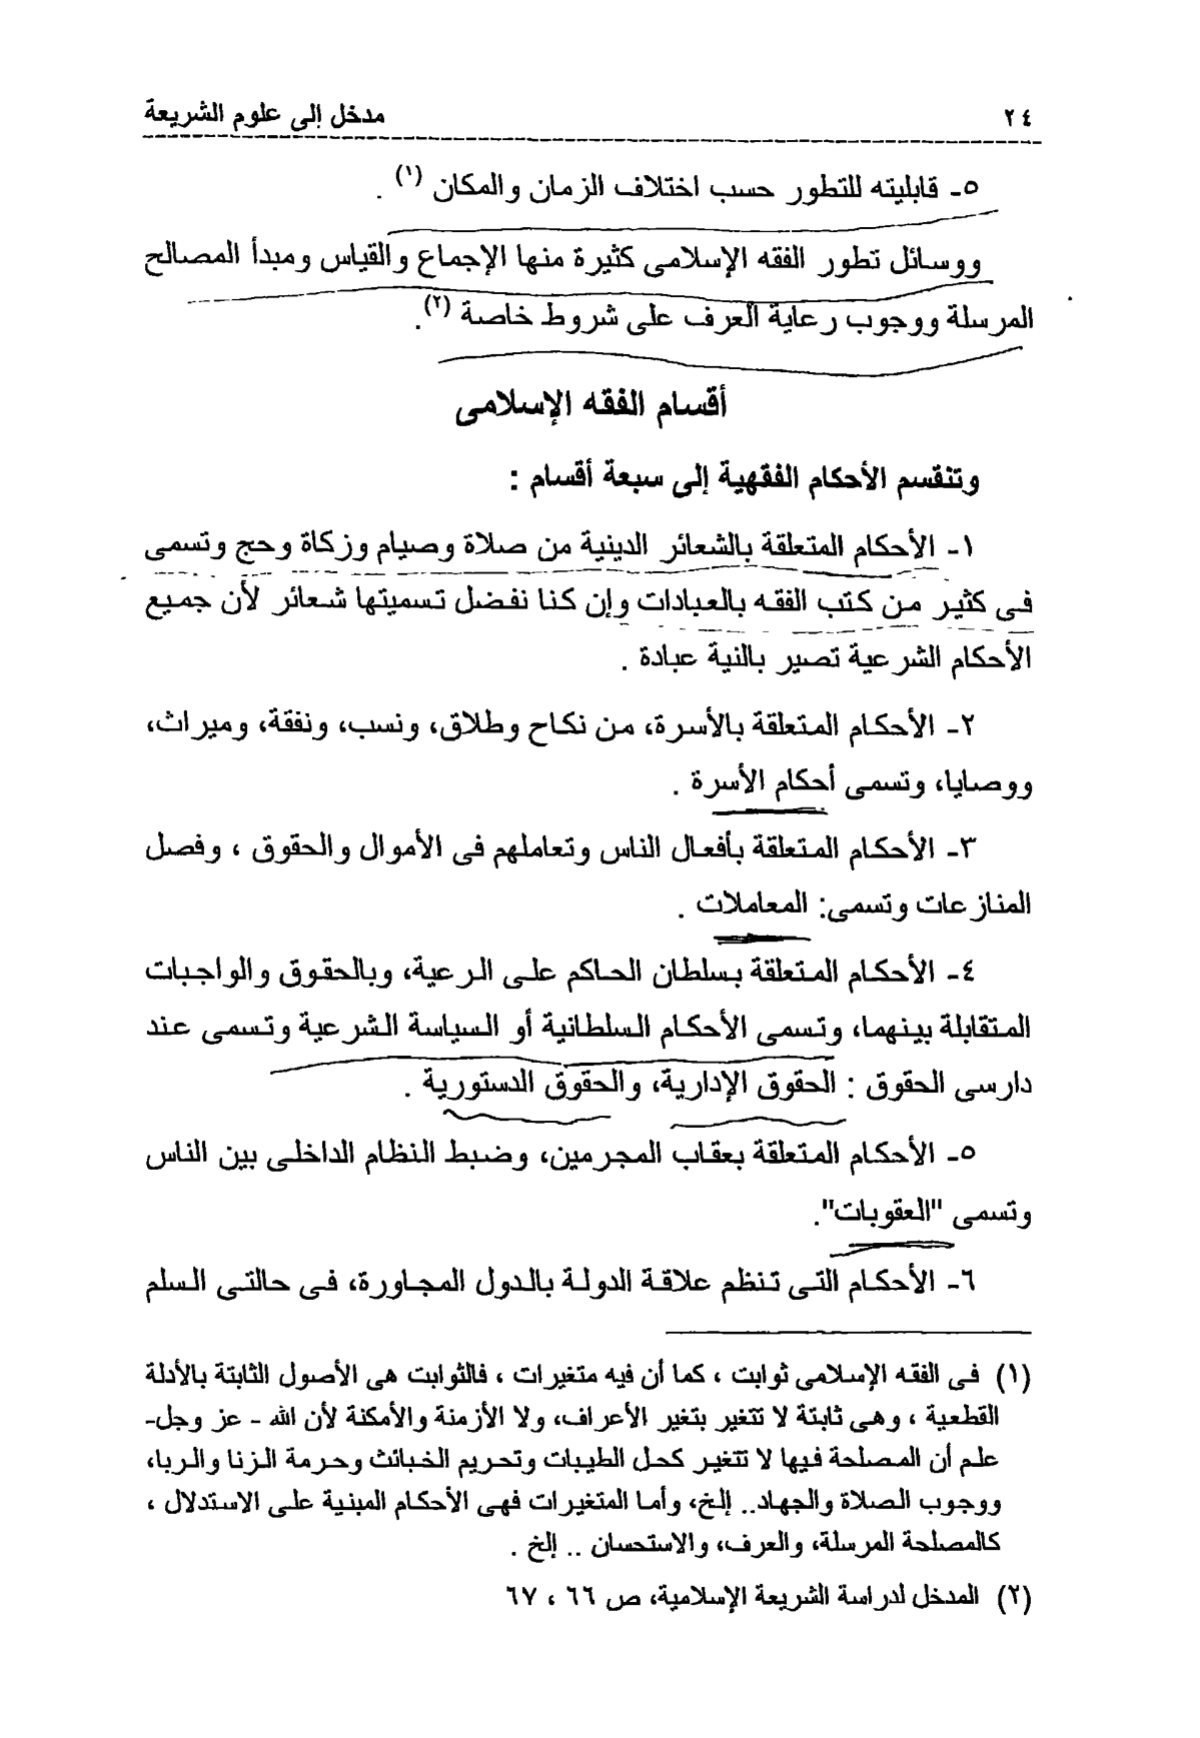 ٢٤
مدخل إلى علوم الشريعة
٥- قابليته للتطور حسب اختلاف الزمان والمكان (١) .
ووسائل تطور الفقه الإسلامى كثيرة منها الإجماع والقياس ومبدأ المصالح
المرسلة ووجوب رعاية العرف على شروط خاصة (٢).
أقسام الفقه الإسلامى
وتنقسم الأحكام الفقهية إلى سبعة أقسام :
١- الأحكام المتعلقة بالشعائر الدينية من صلاة وصيام وزكاة وحج وتسمى
فى كثير من كتب الفقه بالعبادات وإن كنا نفضل تسميتها شعائر لأن جميع
الأحكام الشرعية تصير بالنية عبادة .
٢- الأحكام المتعلقة بالأسرة، من نكاح وطلاق، ونسب، ونفقة، وميراث،
ووصايا، وتسمى أحكام الأسرة .
٣- الأحكام المتعلقة بأفعال الناس وتعاملهم فى الأموال والحقوق ، وفصل
المنازعات وتسمى: المعاملات .
٤- الأحكام المتعلقة بسلطان الحاكم على الرعية، وبالحقوق والواجبات
المتقابلة بينهما، وتسمى الأحكام السلطانية أو السياسة الشرعية وتسمى عند
دارسى الحقوق : الحقوق الإدارية، والحقوق الدستورية .
٥- الأحكام المتعلقة بعقاب المجرمين، وضبط النظام الداخلى بين الناس
وتسمى "العقوبات".
٦- الأحكام التى تنظم علاقة الدولة بالدول المجاورة، فى حالتى السلم
(١) فى الفقه الإسلامى ثوابت ، كما أن فيه متغيرات ، فالثوابت هى الأصول الثابتة بالأدلة
القطعية ، وهى ثابتة لا تتغير بتغير الأعراف، ولا الأزمنة والأمكنة لأن الله - عز وجل-
علم أن المصلحة فيها لا تتغير كحل الطيبات وتحريم الخبائث وحرمة الزنا والربا،
ووجوب الصلاة والجهاد.. إلخ، وأما المتغيرات فهى الأحكام المبنية على الاستدلال ،
كالمصلحة المرسلة، والعرف، والاستحسان .. إلخ .
(٢) المدخل لدراسة الشريعة الإسلامية، ص ٦٦ ، ٦٧